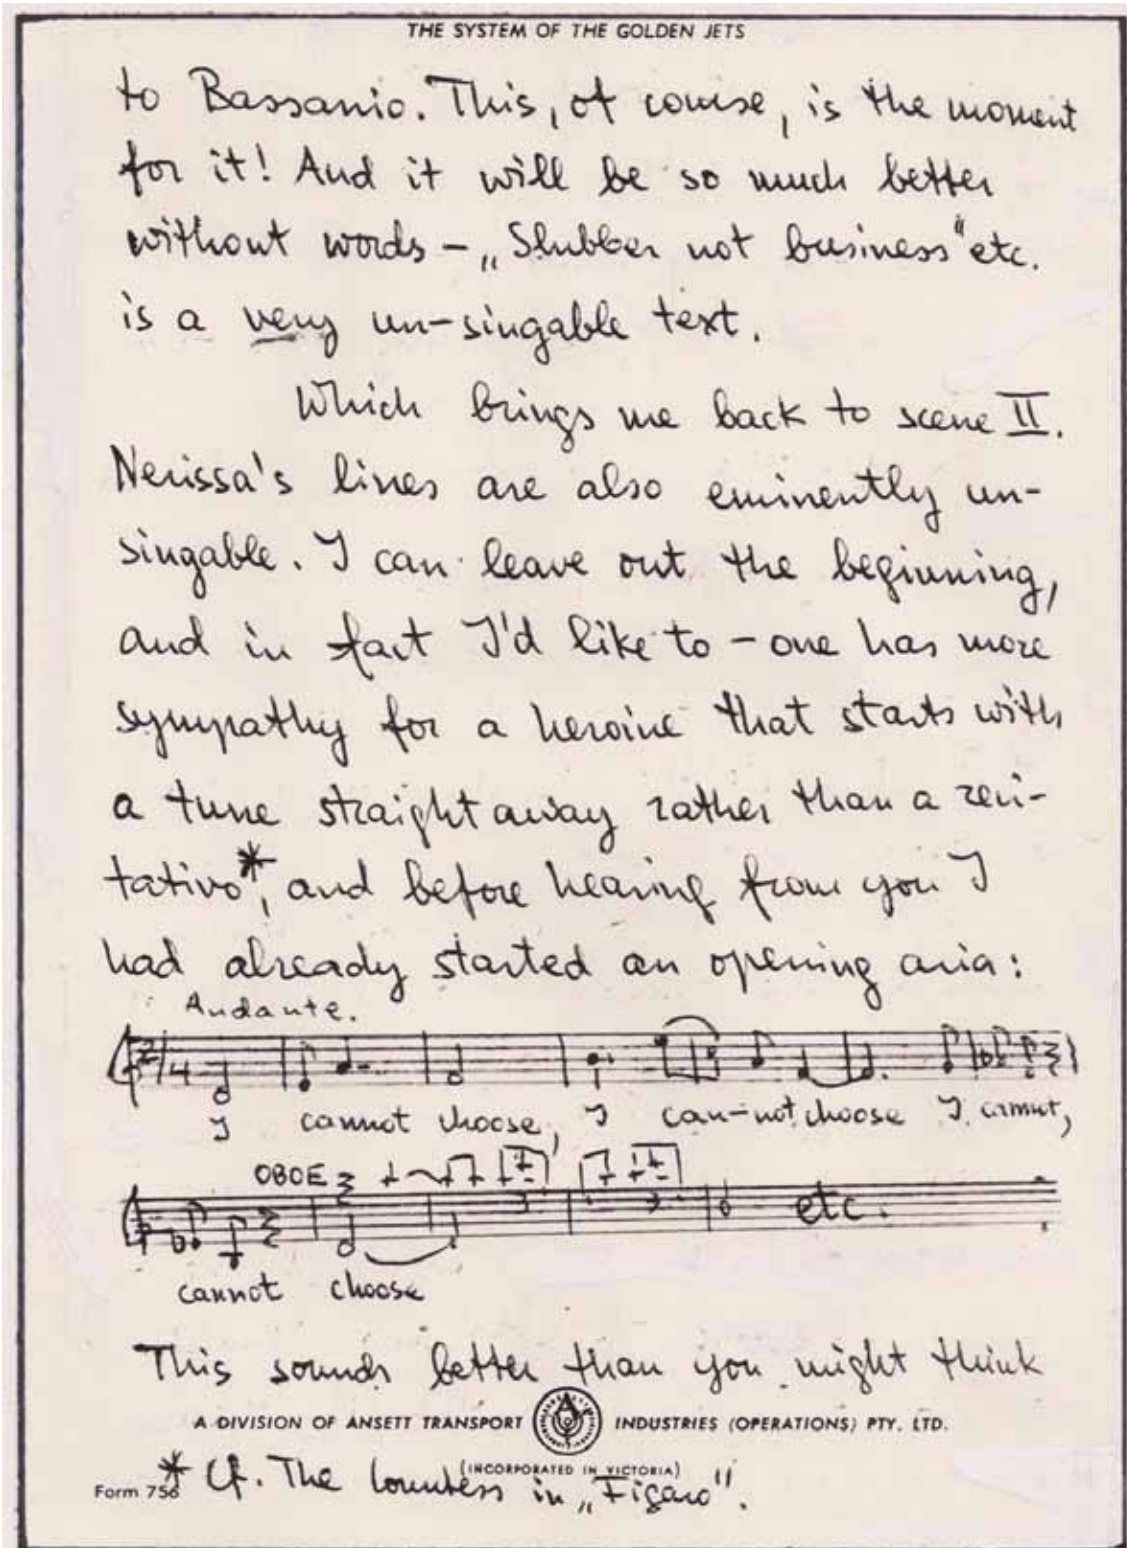 THE SYSTEM OF THE GOLDEN JETS
to Bassanio. This, of course, is the moment
for it! And it will be so much better
without words – „Slubber not business" etc.
is a very un-singable text.
Which brings me back to scene II.
Nerissa's lines are also eminently un-
singable. I can leave out the beginning,
and in fact I'd like to – one has more
sympathy for a heroine that starts with
a tune straight away rather than a reci-
tativo*, and before hearing from you I
had already started an opening aria:
Andante.
2/4
I cannot choose, I can-not choose I cannot,
OBOE
etc.
cannot choose
This sounds better than you might think
A DIVISION OF ANSETT TRANSPORT INDUSTRIES (OPERATIONS) PTY. LTD.
(INCORPORATED IN VICTORIA)
* Cf. The Countess in „Figaro".
Form 756